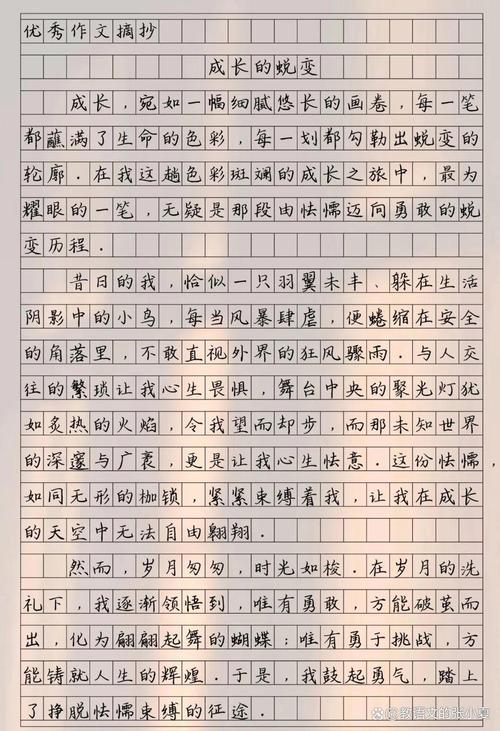 优秀作文摘抄
成长的蜕变
成长，宛如一幅细腻悠长的画卷，每一笔
都蘸满了生命的色彩，每一划都勾勒出蜕变的
轮廓．在我这趟色彩斑斓的成长之旅中，最为
耀眼的一笔，无疑是那段由怯懦迈向勇敢的蜕
变历程．
昔日的我，恰似一只羽翼未丰、躲在生活
阴影中的小鸟，每当风暴肆虐，便蜷缩在安全
的角落里，不敢直视外界的狂风骤雨．与人交
往的繁琐让我心生畏惧，舞台中央的聚光灯犹
如炙热的火焰，令我望而却步，而那未知世界
的深邃与广袤，更是让我心生怯意．这份怯懦，
如同无形的枷锁，紧紧束缚着我，让我在成长
的天空中无法自由翱翔．
然而，岁月匆匆，时光如梭．在岁月的洗
礼下，我逐渐领悟到，唯有勇敢，方能破茧而
出，化为翩翩起舞的蝴蝶；唯有勇于挑战，方
能铸就人生的辉煌．于是，我鼓起勇气，踏上
了挣脱怯懦束缚的征途．
@教语文的张小夏